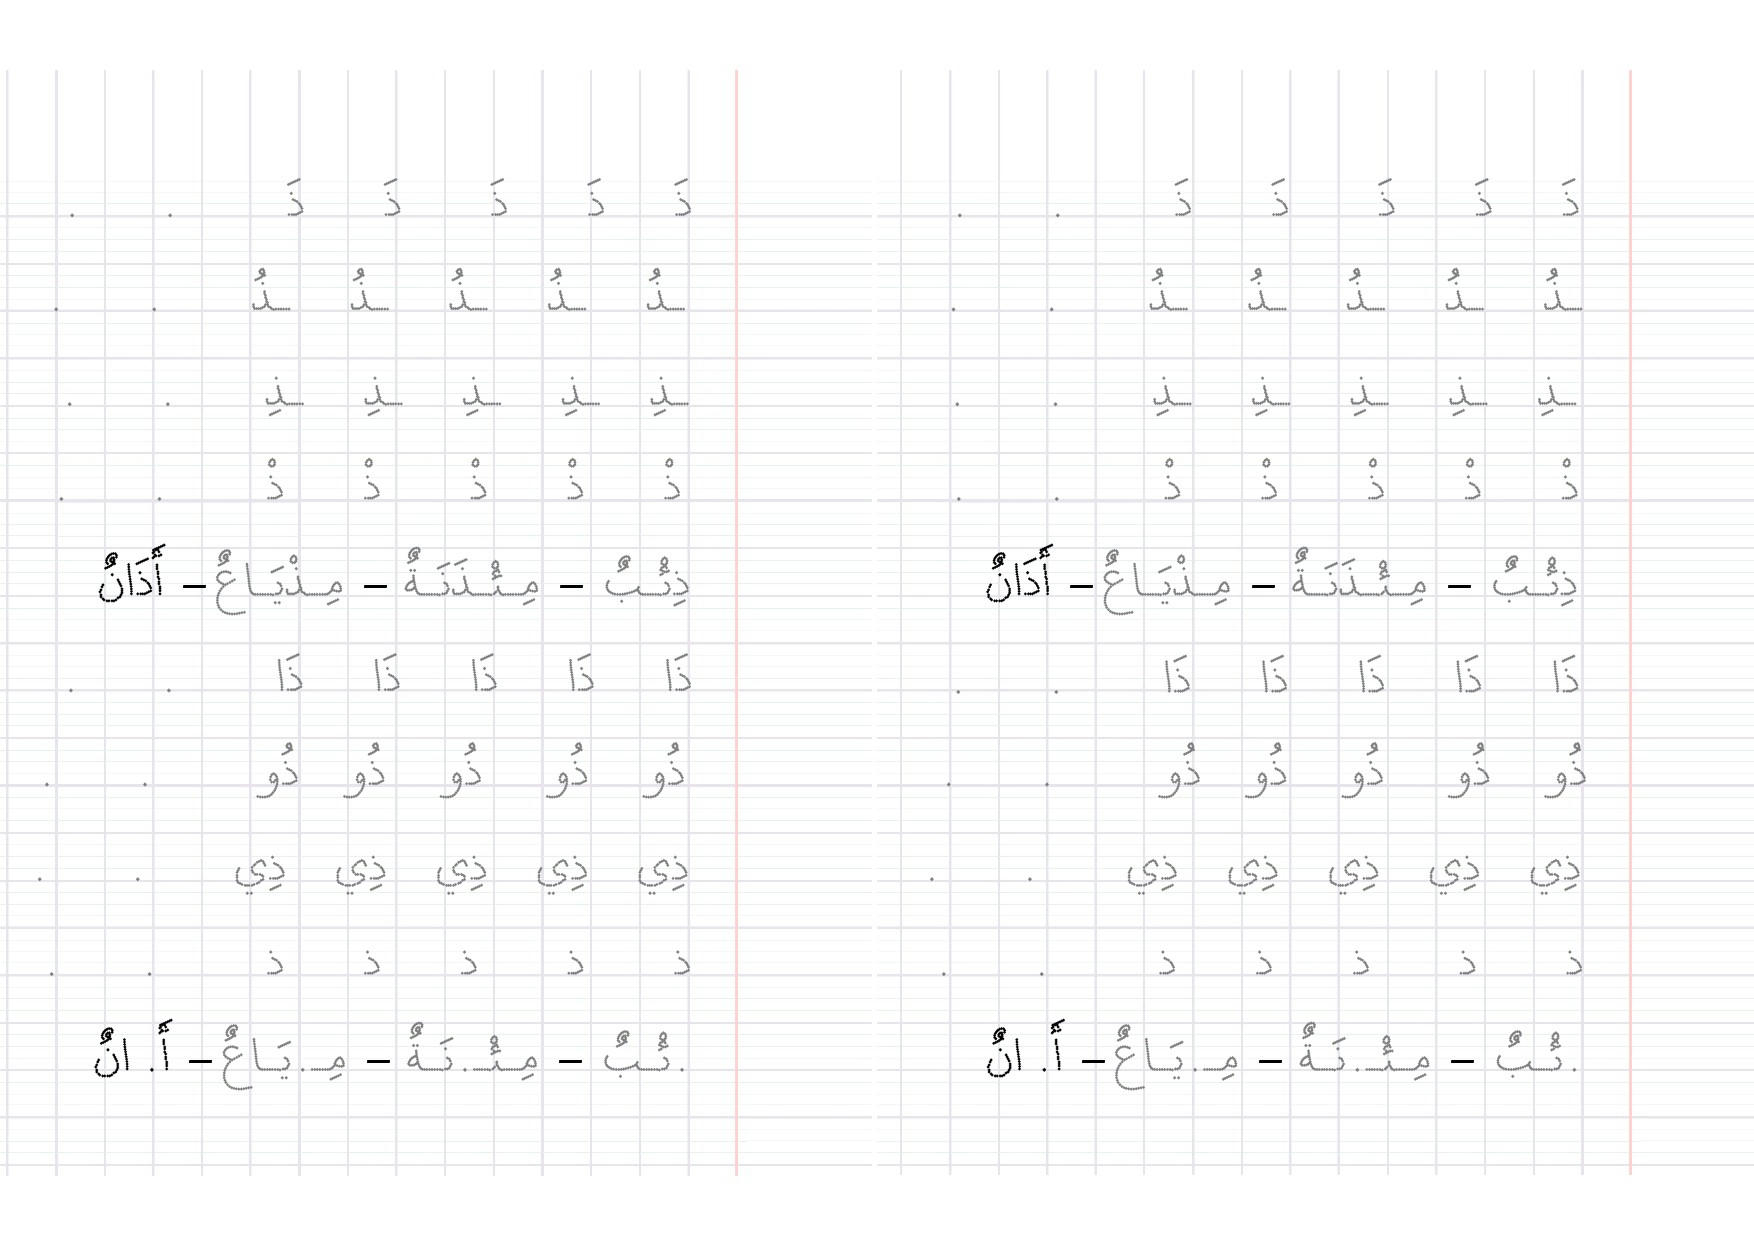 ذَ ذَ ذَ ذَ ذَ . .
ـذُ ـذُ ـذُ ـذُ ـذُ . .
ـذِ ـذِ ـذِ ـذِ ـذِ . .
ذْ ذْ ذْ ذْ ذْ . .
ذِئْبٌ – مِئْذَنَةٌ – مِذْيَاعٌ – أَذَانٌ
ذَا ذَا ذَا ذَا ذَا . .
ذُو ذُو ذُو ذُو ذُو . .
ذِي ذِي ذِي ذِي ذِي . .
ذ ذ ذ ذ ذ . .
. ئْبٌ – مِئْـ . نَةٌ – مِـ . يَاعٌ – أَ . انٌ
ذَ ذَ ذَ ذَ ذَ . .
ـذُ ـذُ ـذُ ـذُ ـذُ . .
ـذِ ـذِ ـذِ ـذِ ـذِ . .
ذْ ذْ ذْ ذْ ذْ . .
ذِئْبٌ – مِئْذَنَةٌ – مِذْيَاعٌ – أَذَانٌ
ذَا ذَا ذَا ذَا ذَا . .
ذُو ذُو ذُو ذُو ذُو . .
ذِي ذِي ذِي ذِي ذِي . .
ذ ذ ذ ذ ذ . .
. ئْبٌ – مِئْـ . نَةٌ – مِـ . يَاعٌ – أَ . انٌ